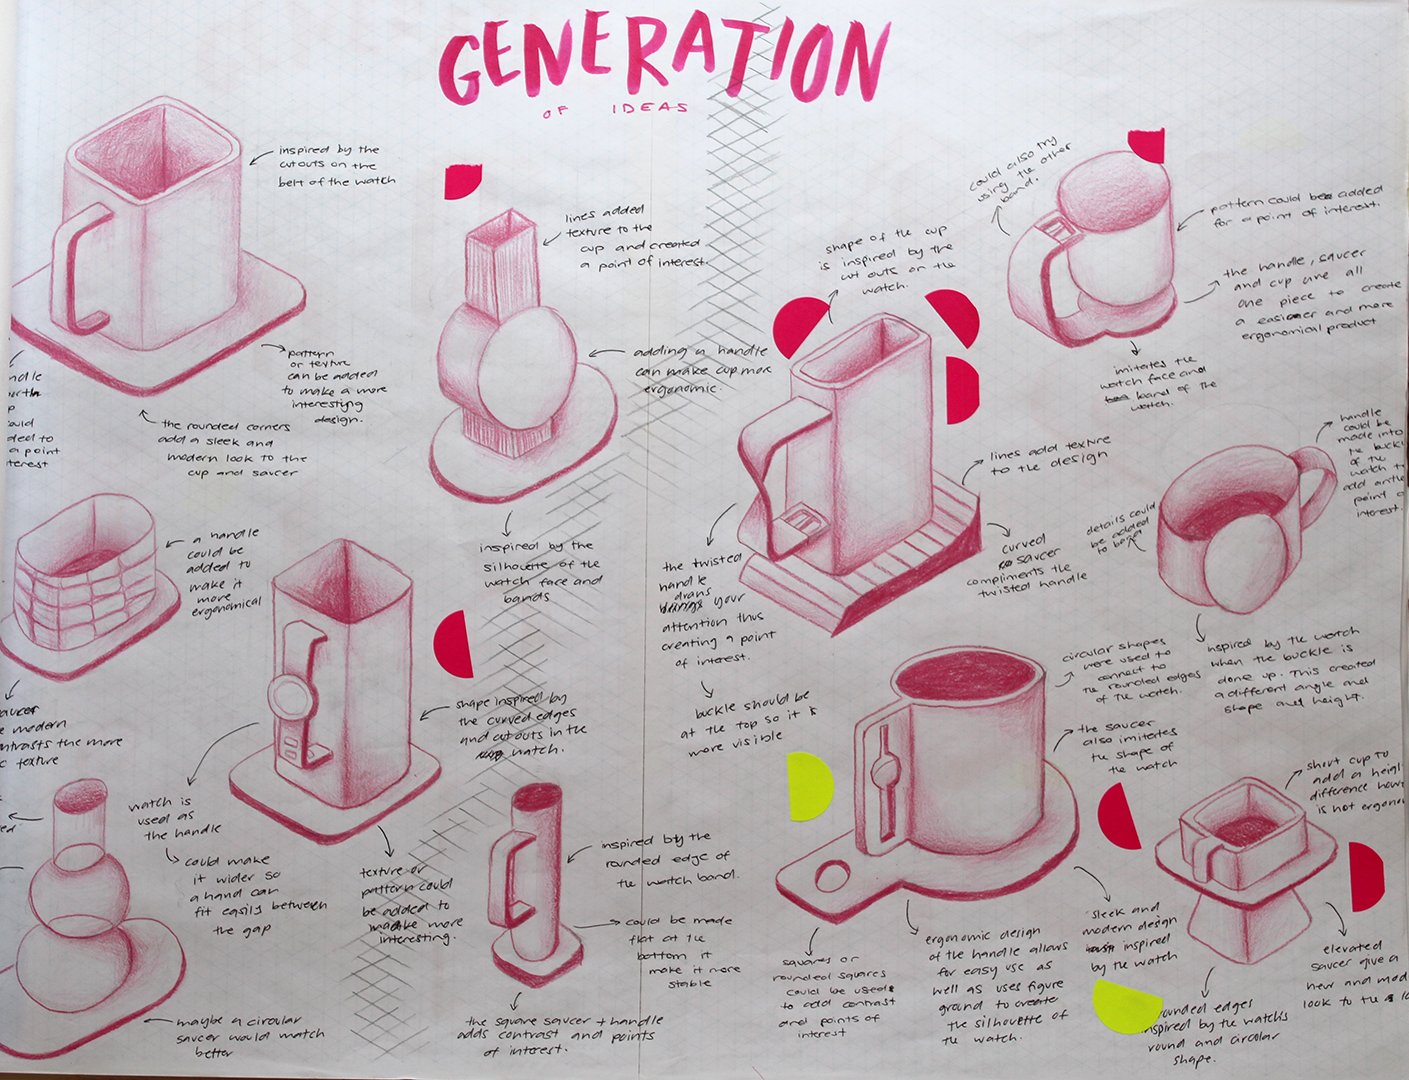 GENERATION
OF IDEAS
inspired by the
cutouts on the
belt of the watch
pattern
or texture
can be added
to make a more
interesting
design.
the rounded corners
add a sleek and
modern look to the
cup and saucer
ndle
p
ould
ded to
a point
terest
lines added
texture to the
cup and created
a point of interest.
adding a handle
can make cup more
ergonomic.
inspired by the
silhouette of the
watch face and
bands
shape of the cup
is inspired by the
cut outs on the
watch.
could also try
using the other
band.
pattern could be added
for a point of interest.
the handle, saucer
and cup are all
one piece to create
a easier and more
ergonomical product
imitates the
watch face and
band of the
watch.
lines add texture
to the design
curved
saucer
compliments the
twisted handle
the twisted
handle
draws
your
attention thus
creating a point
of interest.
buckle should be
at the top so it is
more visible
handle
could be
made into
the buckl
of the
watch t
add anthe
point o
interest.
details could
be added
to band
inspired by the watch
when the buckle is
done up. This created
a different angle and
shape and height.
a handle
could be
added to
make it
more
ergonomical
saucer
e modern
ntrasts the more
c texture
shape inspired by
the curved edges
and cutouts in the
watch.
watch is
used as
the handle
could make
it wider so
a hand can
fit easily between
the gap
texture or
pattern could
be added to
make more
interesting.
ed
maybe a circular
saucer would match
better
inspired by the
rounded edge of
the watch band.
could be made
flat at the
bottom it
make it more
stable
the square saucer + handle
adds contrast and points
of interest.
circular shapes
were used to
connect to
the rounded edges
of the watch.
the saucer
also imitates
the shape of
the watch
squares or
rounded squares
could be used
to add contrast
and points of
interest
ergonomic design
of the handle allows
for easy use as
well as uses figure
ground to create
the silhouette of
the watch.
sleek and
modern design
inspired
by the watch
short cup to
add a heigh
difference how
is not ergono
elevated
saucer give a
new and mod
look to the
rounded edges
inspired by the watch's
round and circular
shape.